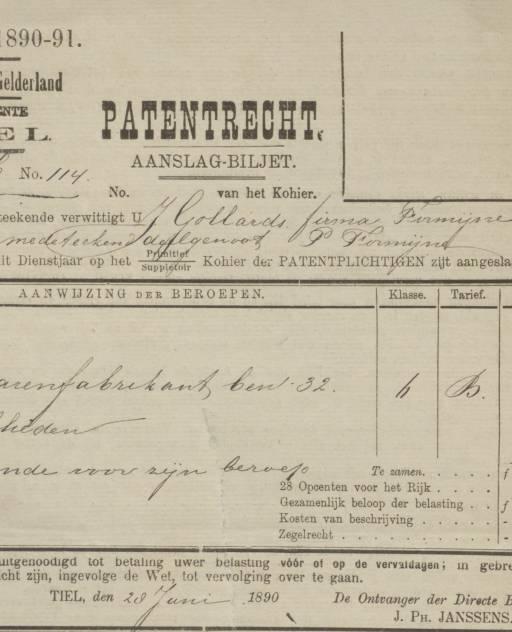 1890-91.
Gelderland
PATENTRECHT.
AANSLAG-BILJET.
No. 114.
No. van het Kohier.
teekende verwittigt U J Collards firma Formijne
medeteekend deelgenoot P Formijne
it Dienstjaar op het Primitief Suppletoir Kohier der PATENTPLICHTIGEN zijt aangesla
AANWIJZING DER BEROEPEN. Klasse. Tarief.
arenfabrikant, ben 32. 6 B.
heden
nde voor zijn beroep Te zamen. . . . . f
28 Opcenten voor het Rijk . . . .
Gezamenlijk beloop der belasting . . f
Kosten van beschrijving . . . . . -
Zegelrecht . . . . . . . . . . -
uitgenoodigd tot betaling uwer belasting vóór of op de vervaldagen; in gebre
icht zijn, ingevolge de Wet, tot vervolging over te gaan.
TIEL, den 28 Juni 1890 De Ontvanger der Directe B
J. PH. JANSSENS.